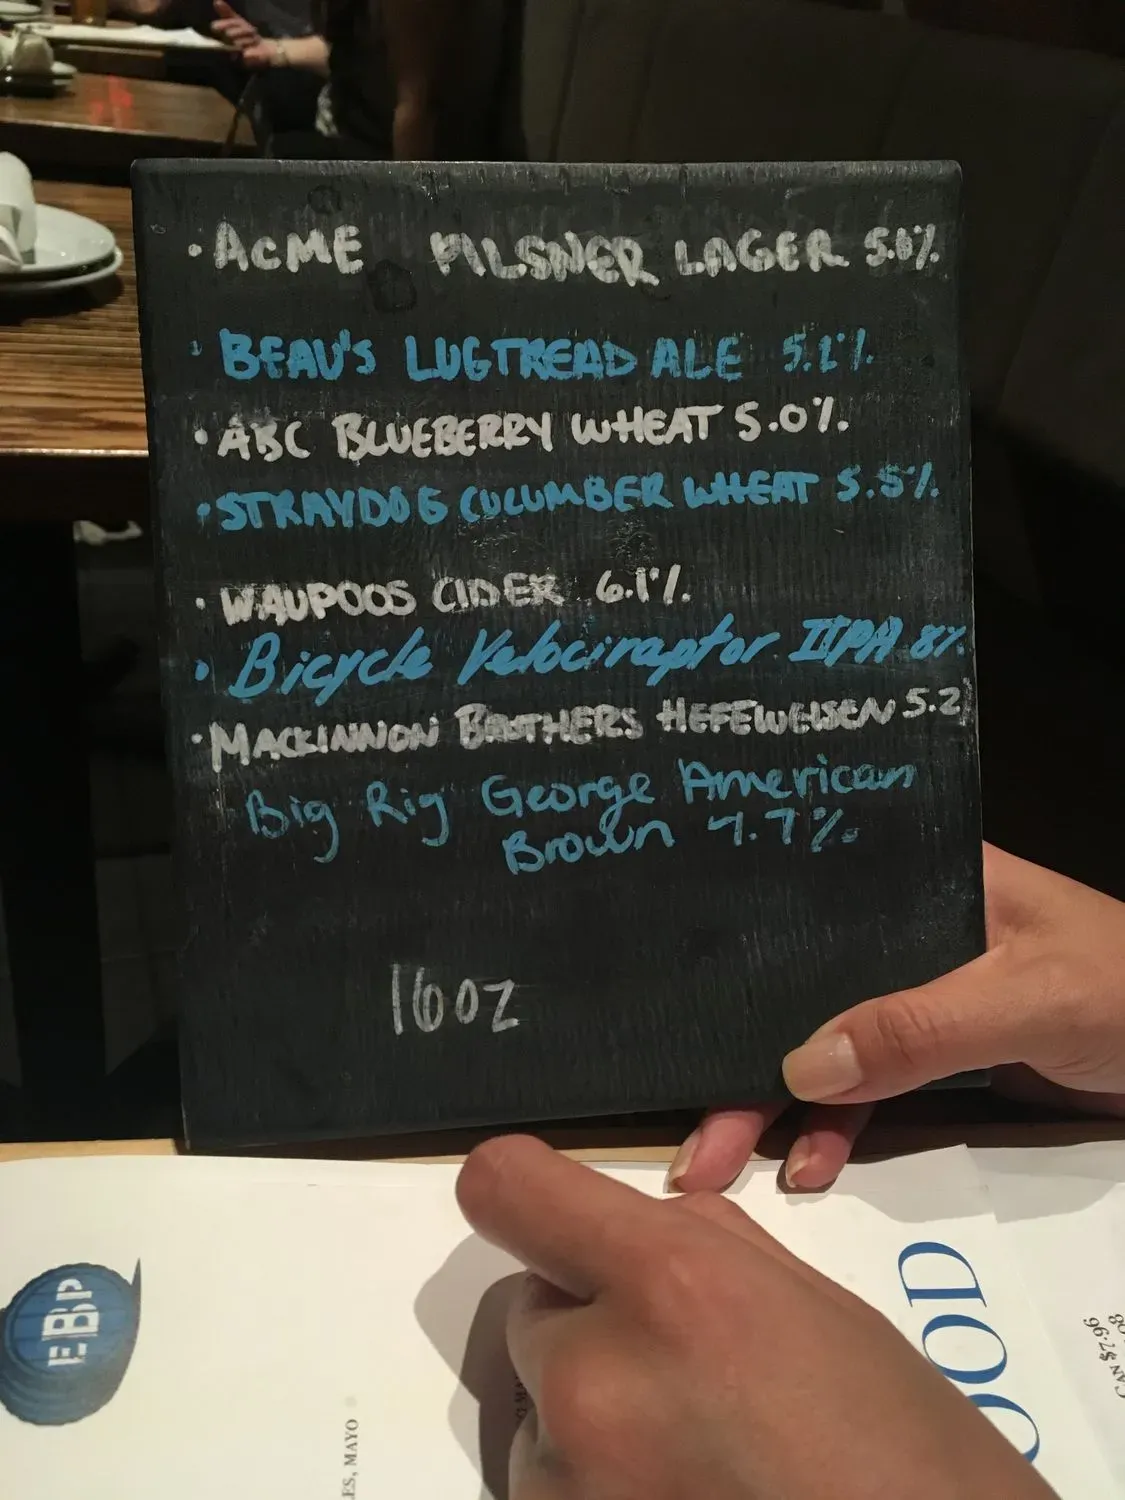 • ACME PILSNER LAGER 5.0%
• BEAU'S LUGTREAD ALE 5.2%
• ABC BLUEBERRY WHEAT 5.0%
• STRAYDOG CUCUMBER WHEAT 5.5%
• WAUPOOS CIDER 6.1%
• Bicycle Velociraptor IIPA 8%
• MACKINNON BROTHERS HEFEWEISEN 5.2
Big Rig George American
Brown 4.7%
16oz
EBP
MAYO
OOD
CAN $7.96